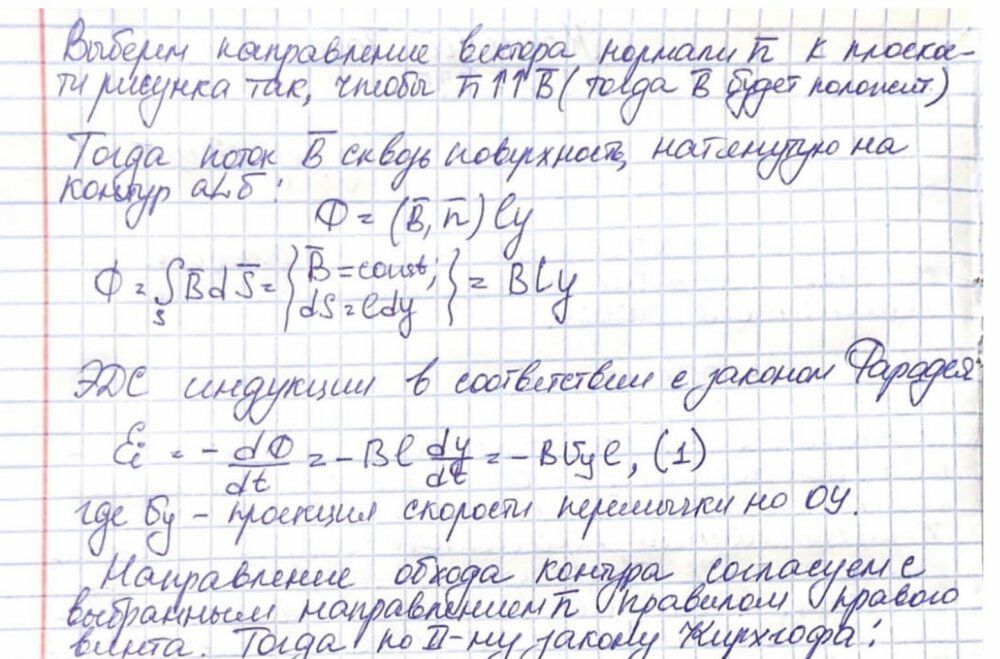 Выберем направление вектора нормали n̅ к плоскос-
ти рисунка так, чтобы n̅ ↑↑ B̅ (тогда B̅ будет положит)
Тогда поток B̅ сквозь поверхность, натянутую на
контур aLб:
Ф = (B̅, n̅) ly
Ф = ∫_S B̅ d S̅ = { B̅ = const; dS = l dy } = B l y
ЭДС индукции в соответствии с законом Фарадея
Ɛi = - dФ/dt = - B l dy/dt = - B υy l, (1)
где υy – проекция скорости перемычки на OY.
Направление обхода контура согласуем с
выбранным направлением n̅ правилом правого
винта. Тогда по II-му закону Кирхгофа: